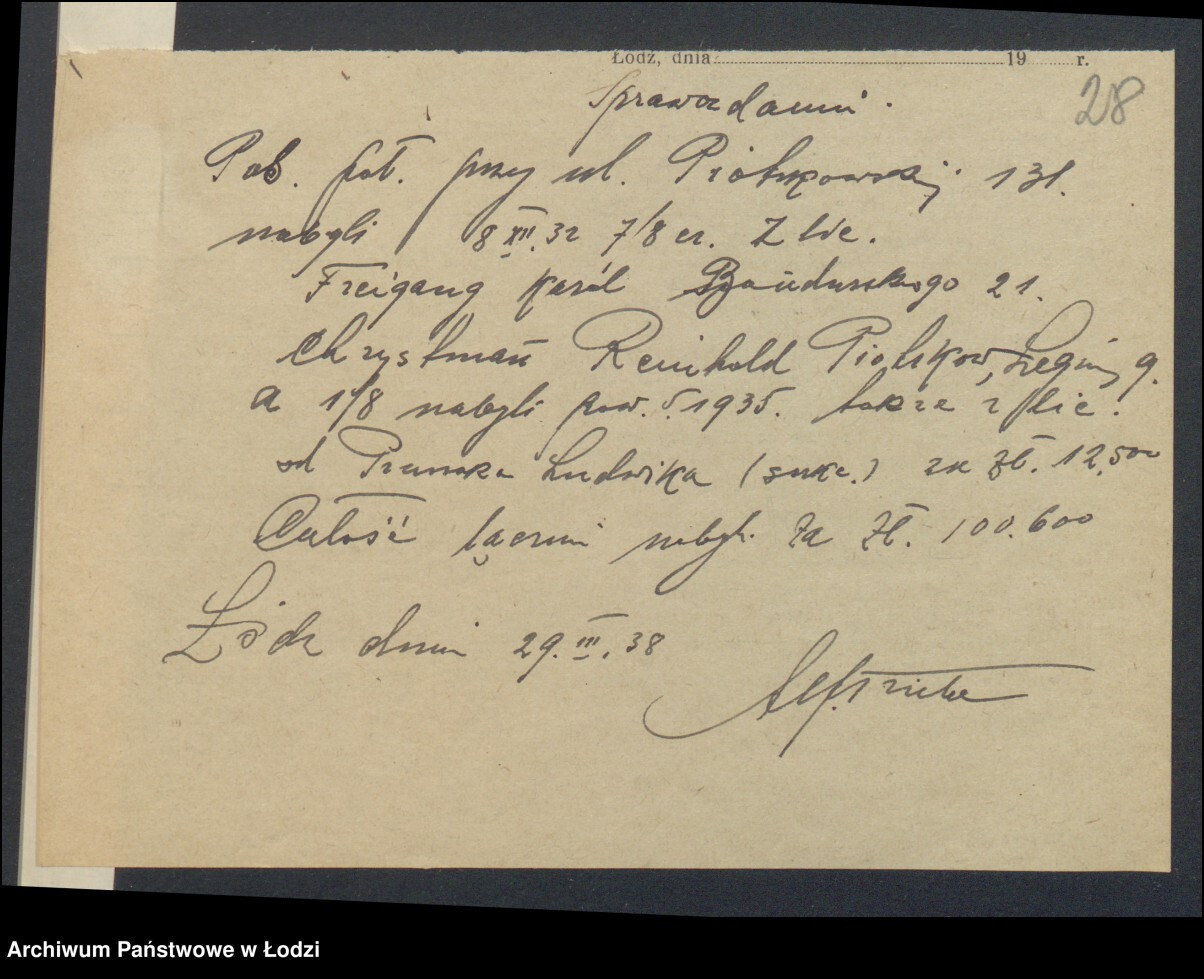 Łódź, dnia 19 r.
28
Sprawozdanie.
Pos. poł. przy ul. Piotrkowskiej 131.
nabyli 8 XII.32 7/8 cz. z lic.
Freigang Karol Bandurskiego 21.
Chrystman Reinhold Piotrków, Legion. 9.
a 1/8 nabyli 1935. także z lic.
od Ludwika (sukc.) za zł. 12,500
Całość łącznie nabyli za zł. 100.600
Łódź dnia 29.III.38
Archiwum Państwowe w Łodzi